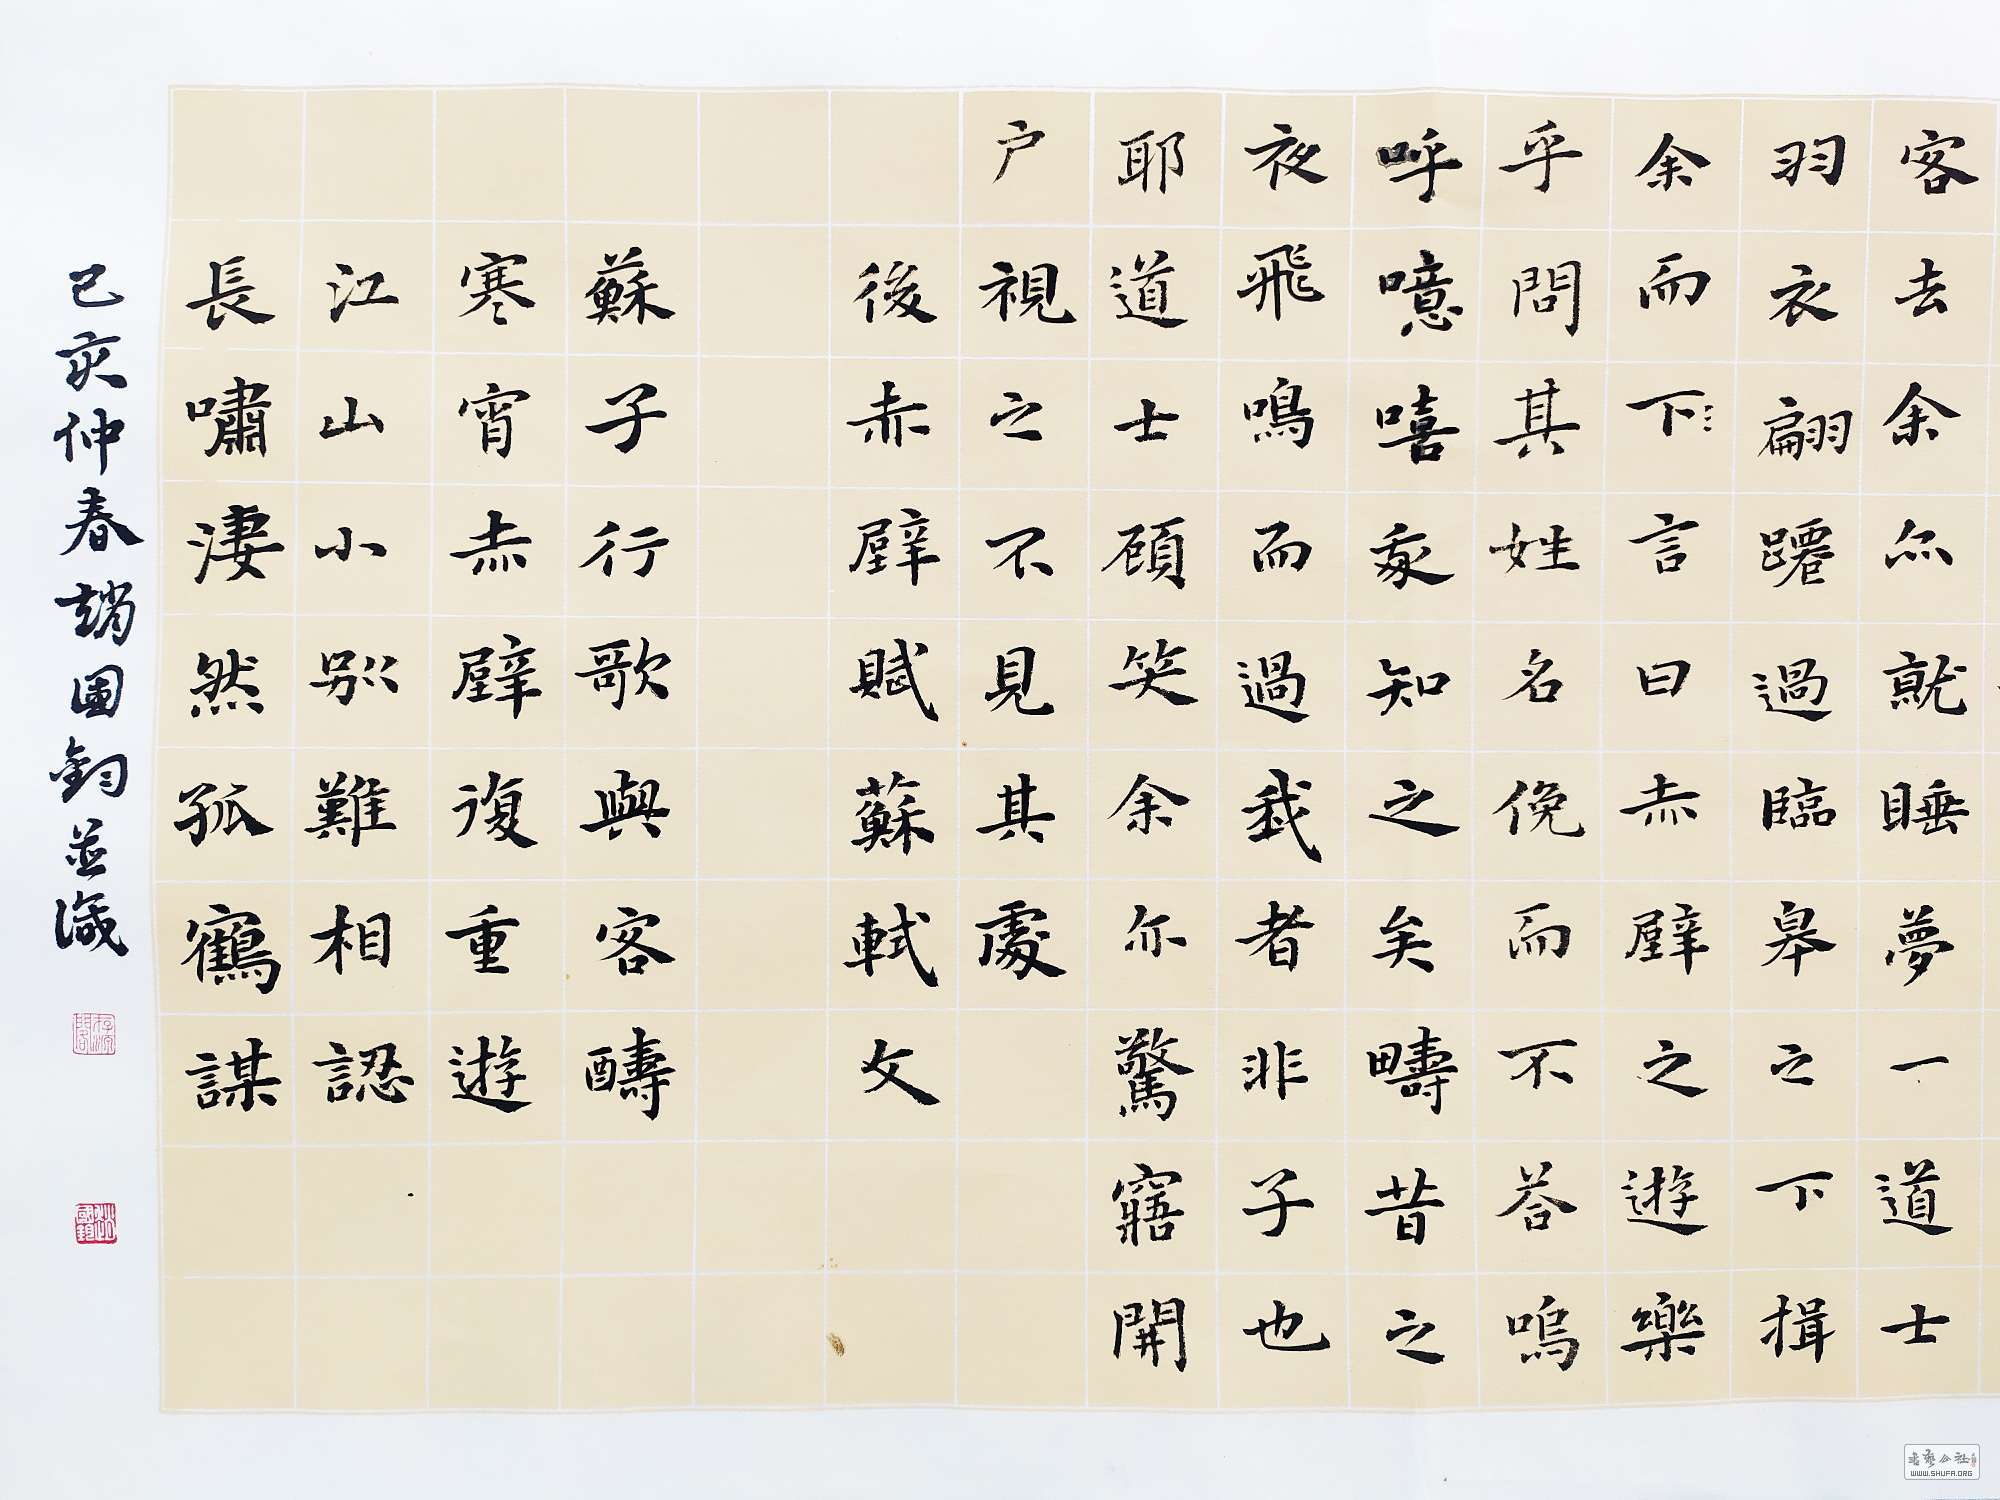 客去余亦就睡夢一道士
羽衣翩躚過臨皋之下揖
余而下言曰赤壁之遊樂
乎問其姓名俛而不答嗚
呼噫嘻我知之矣疇昔之
夜飛鳴而過我者非子也
耶道士顧笑余亦驚寤開
户視之不見其處
後赤壁賦蘇軾文
蘇子行歌與客醻
寒宵赤壁復重遊
江山小別難相認
長嘯淒然孤鶴謀
己亥仲春趙國鈞並識
書藝公社
WWW.SHUFA.ORG